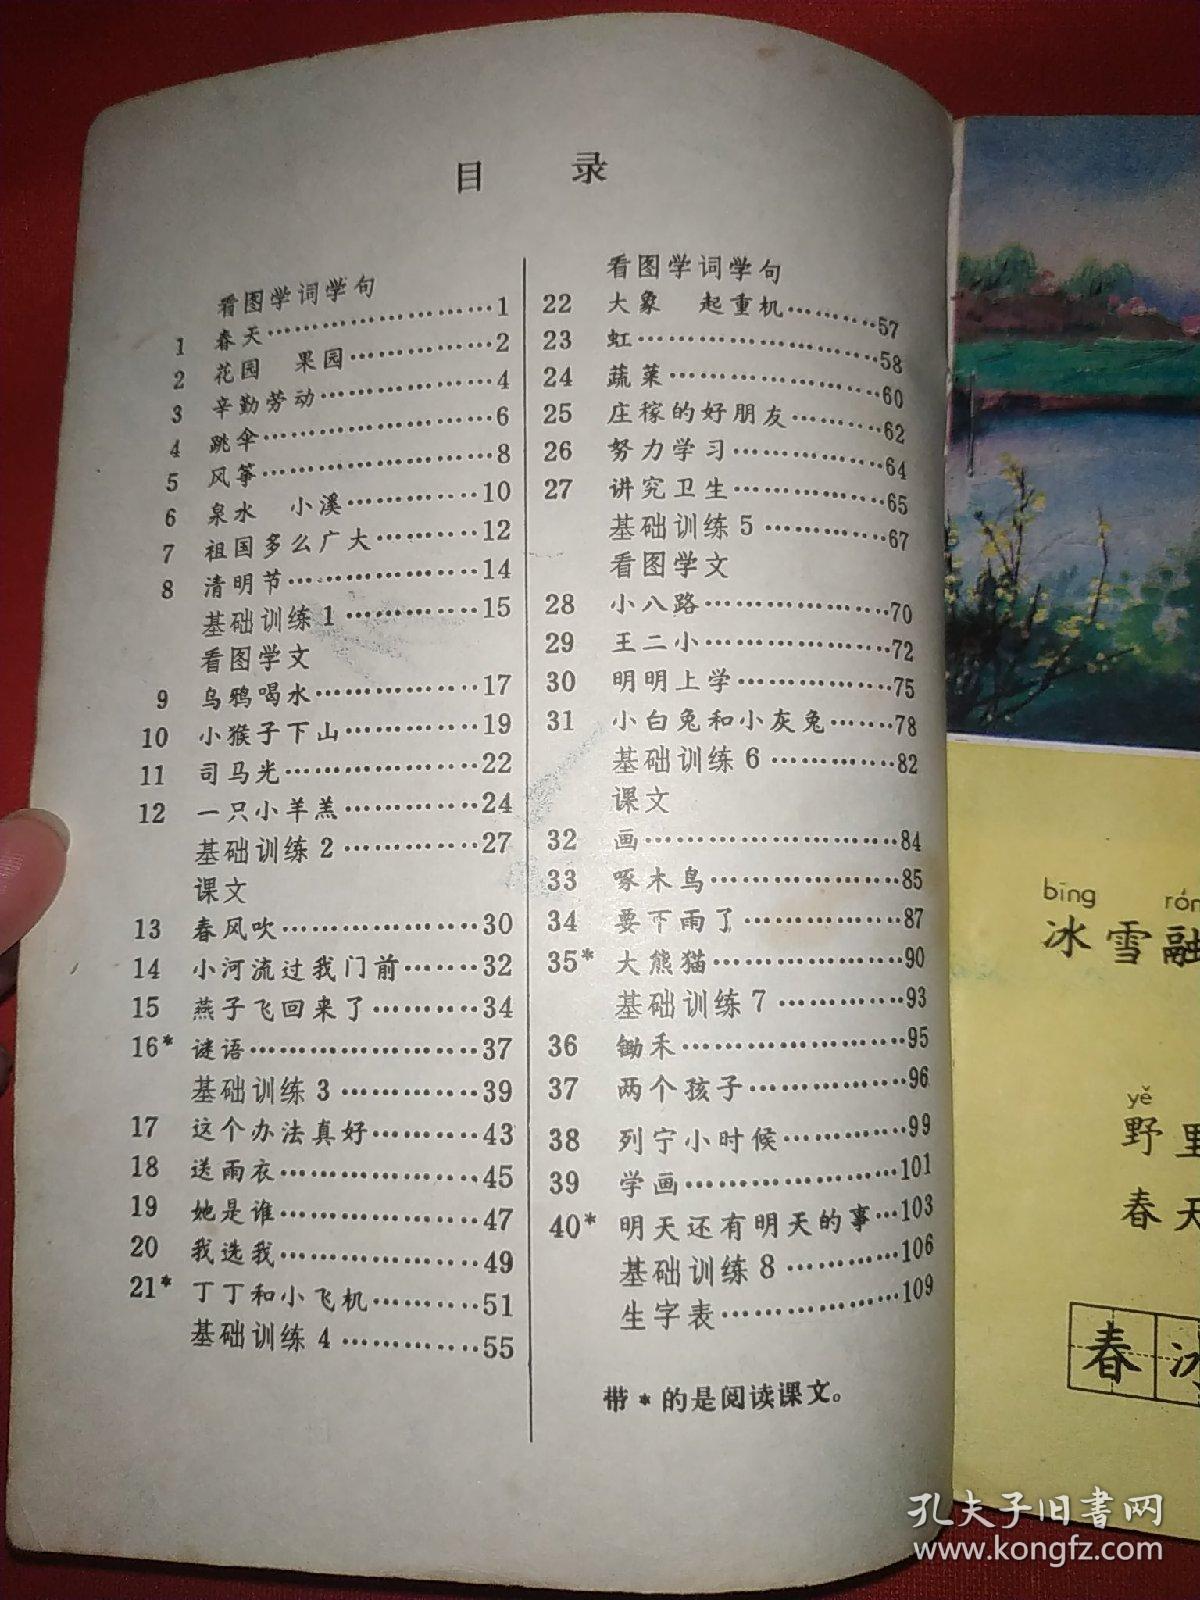 目 录
看图学词学句
1 春天……………………1
2 花园 果园……………2
3 辛勤劳动………………4
4 跳伞……………………6
5 风筝……………………8
6 泉水 小溪……………10
7 祖国多么广大…………12
8 清明节…………………14
基础训练1……………15
看图学文
9 乌鸦喝水………………17
10 小猴子下山……………19
11 司马光…………………22
12 一只小羊羔……………24
基础训练2……………27
课文
13 春风吹…………………30
14 小河流过我门前………32
15 燕子飞回来了…………34
16* 谜语……………………37
基础训练3……………39
17 这个办法真好…………43
18 送雨衣…………………45
19 她是谁…………………47
20 我选我…………………49
21* 丁丁和小飞机…………51
基础训练4……………55
看图学词学句
22 大象 起重机…………57
23 虹………………………58
24 蔬菜……………………60
25 庄稼的好朋友…………62
26 努力学习………………64
27 讲究卫生………………65
基础训练5……………67
看图学文
28 小八路…………………70
29 王二小…………………72
30 明明上学………………75
31 小白兔和小灰兔………78
基础训练6……………82
课文
32 画………………………84
33 啄木鸟…………………85
34 要下雨了………………87
35* 大熊猫…………………90
基础训练7……………93
36 锄禾……………………95
37 两个孩子………………96
38 列宁小时候……………99
39 学画……………………101
40* 明天还有明天的事…103
基础训练8……………106
生字表…………………109
带*的是阅读课文。
bīng
冰雪融
yě
野里
春天
春冰
孔夫子旧书网
www.kongfz.com